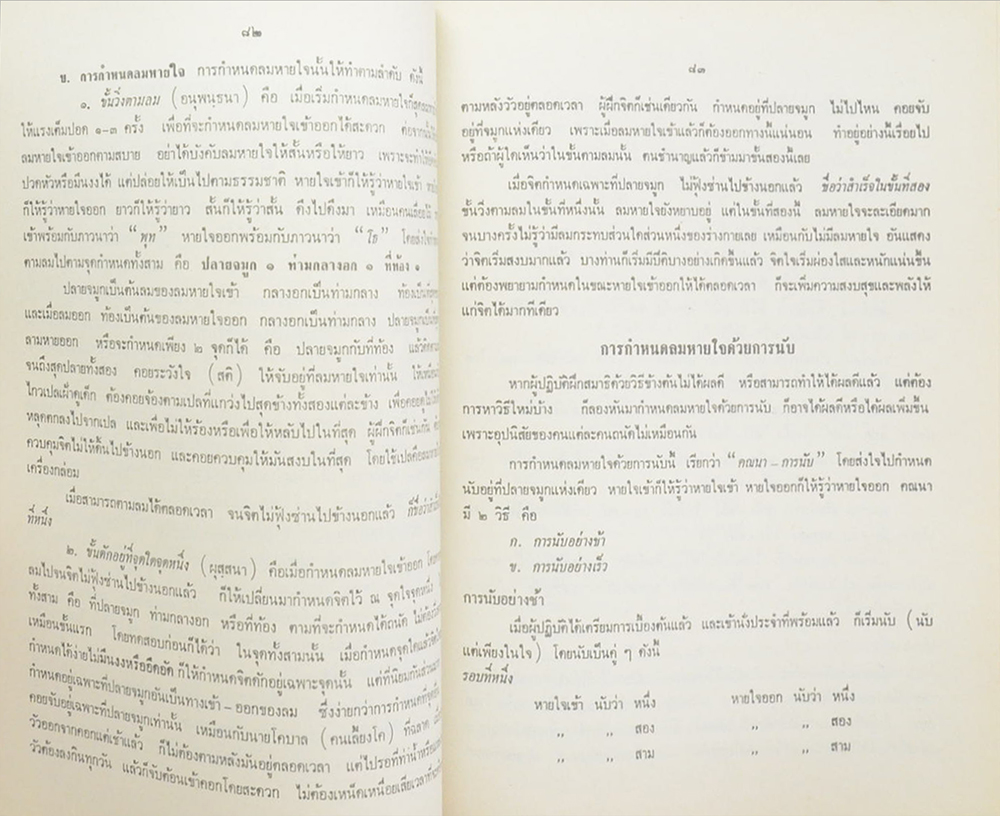 ๘๒
ข. การกำหนดลมหายใจ การกำหนดลมหายใจนั้นให้ทำตามลำดับ ดังนี้
๑. ขั้นวิ่งตามลม (อนุพนฺธนา) คือ เมื่อเริ่มกำหนดลมหายใจก็สูดลม
ให้แรงเต็มปอด ๑-๓ ครั้ง เพื่อที่จะกำหนดลมหายใจเข้าออกได้สะดวก ต่อจากนั้น
ลมหายใจเข้าออกตามสบาย อย่าได้บังคับลมหายใจให้สั้นหรือให้ยาว เพราะจะทำให้
ปวดหัวหรือมึนงงได้ แต่ปล่อยให้เป็นไปตามธรรมชาติ หายใจเข้าก็ให้รู้ว่าหายใจเข้า
ก็ให้รู้ว่าหายใจออก ยาวก็ให้รู้ว่ายาว สั้นก็ให้รู้ว่าสั้น ดึงไปดึงมา เหมือนคนเลื่อยไม้
เข้าพร้อมกับภาวนาว่า “พุท” หายใจออกพร้อมกับภาวนาว่า “โธ” โดยส่งใจ
ตามลมไปตามจุดกำหนดทั้งสาม คือ ปลายจมูก ๑ ท่ามกลางอก ๑ ที่ท้อง ๑
ปลายจมูกเป็นต้นลมของลมหายใจเข้า กลางอกเป็นท่ามกลาง ท้องเป็นที่สุด
และเมื่อลมออก ท้องเป็นต้นของลมหายใจออก กลางอกเป็นท่ามกลาง ปลายจมูกเป็นที่สุด
ลามหายออก หรือจะกำหนดเพียง ๒ จุดก็ได้ คือ ปลายจมูกกับที่ท้อง แล้วติดตาม
จนถึงสุดปลายทั้งสอง คอยระวังใจ (สติ) ให้จับอยู่ที่ลมหายใจเท่านั้น ให้เหมือน
ไกวเปลเฝ้าดูเด็ก ต้องคอยจ้องตามเปลที่แกว่งไปสุดข้างทั้งสองแต่ละข้าง เพื่อคอยดูไม่ให้
หลุดตกลงไปจากเปล และเพื่อไม่ให้ร้องหรือเพื่อให้หลับไปในที่สุด ผู้ฝึกจิตก็เช่นกัน
ควบคุมจิตไม่ให้ดิ้นไปข้างนอก และคอยควบคุมให้มันสงบในที่สุด โดยใช้เปลคือลมหายใจ
เครื่องกล่อม
เมื่อสามารถตามลมได้ตลอดเวลา จนจิตไม่ฟุ้งซ่านไปข้างนอกแล้ว ก็ชื่อว่าสำเร็จ
ที่หนึ่ง
๒. ขั้นดักอยู่ที่จุดใดจุดหนึ่ง (ผุสฺสนา) คือเมื่อกำหนดลมหายใจเข้าออก
ลมไปจนจิตไม่ฟุ้งซ่านไปข้างนอกแล้ว ก็ให้เปลี่ยนมากำหนดจิตไว้ ณ จุดใดจุดหนึ่ง
ทั้งสาม คือ ที่ปลายจมูก ท่ามกลางอก หรือที่ท้อง ตามที่จะกำหนดได้ถนัด ไม่ต้อง
เหมือนขั้นแรก โดยทดสอบก่อนก็ได้ว่า ในจุดทั้งสามนั้น เมื่อกำหนดจุดใดแล้วจิต
กำหนดได้ง่ายไม่มึนงงหรืออึดอัด ก็ให้กำหนดจิตดักอยู่เฉพาะจุดนั้น แต่ที่นิยมกันส่วนมาก
กำหนดอยู่เฉพาะที่ปลายจมูกอันเป็นทางเข้า-ออกของลม ซึ่งง่ายกว่าการกำหนดที่จุด
คอยจับอยู่เฉพาะที่ปลายจมูกเท่านั้น เหมือนกับนายโคบาล (คนเลี้ยงโค) ที่ฉลาด
วัวออกจากคอกแต่เช้าแล้ว ก็ไม่ต้องตามหลังมันอยู่ตลอดเวลา แต่ไปรอที่ท่าน้ำ
วัวต้องลงกินทุกวัน แล้วก็จับต้อนเข้าคอกโดยสะดวก ไม่ต้องเหน็ดเหนื่อยเสียเวลา
๘๓
ตามหลังวัวอยู่ตลอดเวลา ผู้ฝึกจิตก็เช่นเดียวกัน กำหนดอยู่ที่ปลายจมูก ไม่ไปไหน คอยจับ
อยู่ที่จมูกแห่งเดียว เพราะเมื่อลมหายใจเข้าแล้วก็ต้องออกทางนี้แน่นอน ทำอยู่อย่างนี้เรื่อยไป
หรือถ้าผู้ใดเห็นว่าในขั้นตามลมนั้น ตนชำนาญแล้วก็ข้ามมาขั้นสองนี้เลย
เมื่อจิตกำหนดเฉพาะที่ปลายจมูก ไม่ฟุ้งซ่านไปข้างนอกแล้ว ชื่อว่าสำเร็จในขั้นที่สอง
ขั้นวิ่งตามลมในขั้นที่หนึ่งนั้น ลมหายใจยังหยาบอยู่ แต่ในขั้นที่สองนี้ ลมหายใจจะละเอียดมาก
จนบางครั้งไม่รู้ว่ามีลมกระทบส่วนใดส่วนหนึ่งของร่างกายเลย เหมือนกับไม่มีลมหายใจ อันแสดง
ว่าจิตเริ่มสงบมากแล้ว บางท่านก็เริ่มมีปีติบางอย่างเกิดขึ้นแล้ว จิตใจเริ่มผ่องใสและหนักแน่นขึ้น
แต่ต้องพยายามกำหนดในขณะหายใจเข้าออกให้ได้ตลอดเวลา ก็จะเพิ่มความสงบสุขและพลังให้
แก่จิตได้มากทีเดียว
การกำหนดลมหายใจด้วยการนับ
หากผู้ปฏิบัติฝึกสมาธิด้วยวิธีข้างต้นไม่ได้ผลดี หรือสามารถทำให้ได้ผลดีแล้ว แต่ต้อง
การหาวิธีใหม่บ้าง ก็ลองหันมากำหนดลมหายใจด้วยการนับ ก็อาจได้ผลดีหรือได้ผลเพิ่มขึ้น
เพราะอุปนิสัยของคนแต่ละคนถนัดไม่เหมือนกัน
การกำหนดลมหายใจด้วยการนับนี้ เรียกว่า “คณนา – การนับ” โดยส่งใจไปกำหนด
นับอยู่ที่ปลายจมูกแห่งเดียว หายใจเข้าก็ให้รู้ว่าหายใจเข้า หายใจออกก็ให้รู้ว่าหายใจออก คณนา
มี ๒ วิธี คือ
ก. การนับอย่างช้า
ข. การนับอย่างเร็ว
การนับอย่างช้า
เมื่อผู้ปฏิบัติได้เตรียมการเบื้องต้นแล้ว และเข้านั่งประจำที่พร้อมแล้ว ก็เริ่มนับ (นับ
แต่เพียงในใจ) โดยนับเป็นคู่ ๆ ดังนี้
รอบที่หนึ่ง
หายใจเข้า นับว่า หนึ่ง หายใจออก นับว่า หนึ่ง
,, ,, สอง ,, ,, สอง
,, ,, สาม ,, ,, สาม